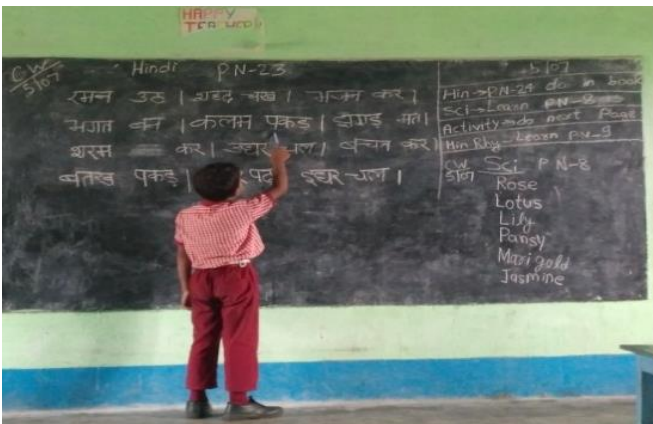 HAPPY
TEACHER
CW
5/07
Hindi PN-23
रमन उठ । शहद चख । भजन कर ।
भगत बन । कलम पकड़ । झगड़ मत ।
शरम कर । उधर चल । बचत कर ।
बतख पकड़ । पढ़ इधर चल ।
5/07
Hin → PN-24 do in book
Sci → Learn PN-8
Activity → do next Page
Hin Rhy Learn PN-9
CW
5/07
Sci PN-8
Rose
Lotus
Lily
Pansy
Marigold
Jasmine